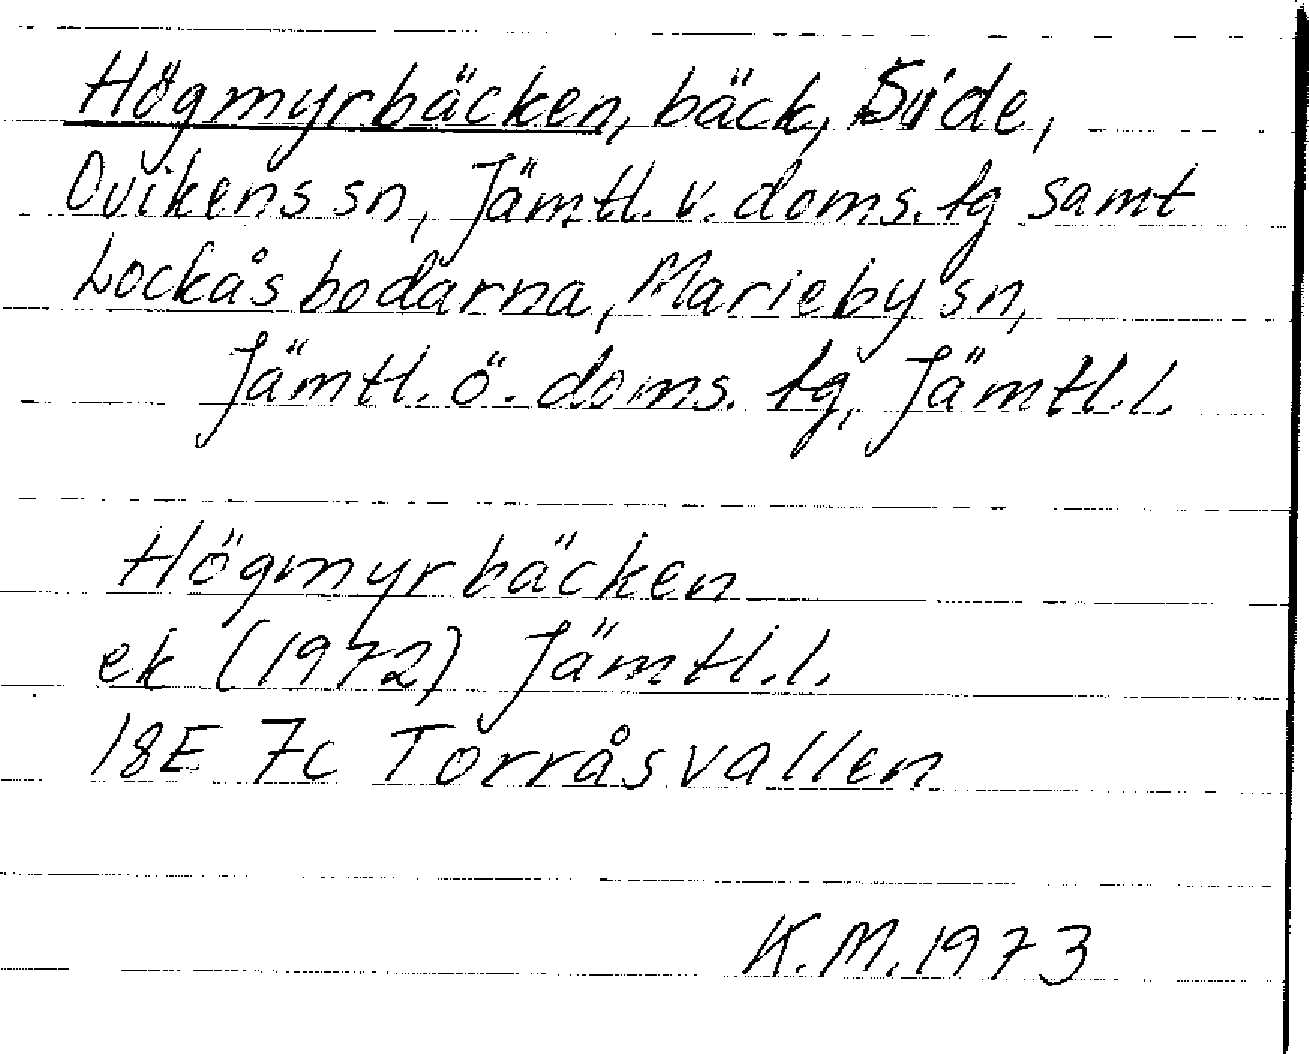 Högmyrbäcken, bäck, Side,
Ovikens sn, Jämtl. v. doms. tg samt
Lockåsbodarna, Marieby sn,
Jämtl. ö. doms. tg, Jämtl.l.
Högmyrbäcken
ek (1972) Jämtl.l.
18E 7c Torråsvallen
K.M. 1973